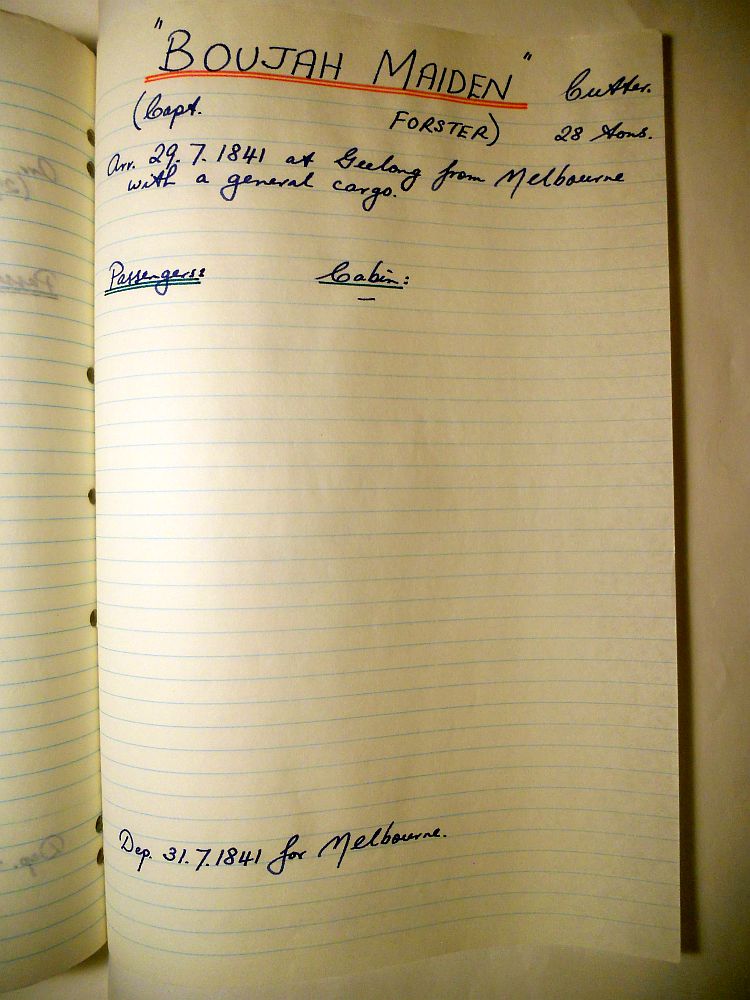 "BOUJAH MAIDEN" Cutter.
(Capt. FORSTER) 28 tons.
Arr. 29.7.1841 at Geelong from Melbourne
with a general cargo.
Passengers: Cabin:
—
Dep. 31.7.1841 for Melbourne.